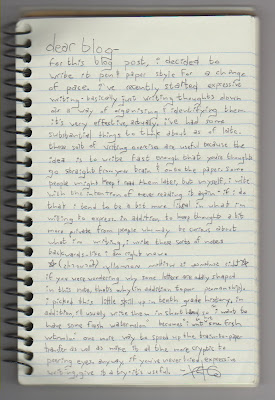 dear blog-
for this blog post, i decided to
write it pen & paper style for a change
of pace. i've recently started expressive
writing - basically just writing thoughts down
as a way of organising & identifying them
it's very effective, actually. i've had some
substantial things to think about as of late.
these sorts of writing exercise are useful because the
idea is to write fast enough that your thoughts
go straight from your brain & onto the paper. some
people might keep & read them later, but myself, i write
with the intention of never reading it again - if i do
that i tend to be a bit more in what i'm
willing to express. in addition, to keep thoughts a bit
more private from people who may be curious about
what i'm writing, i write these sorts of notes
backwards like i am right now
if you were wondering why some letters are oddly shaped
in this note, that's why. in addition to poor penmanship,
i picked this little spill up in tenth grade history, in
addition i usually write them in shorthand, so i won't be
have some fresh watermelon becomes i ate some fresh
watermelon one more way to speed up the brain-to-paper
transfer as well as make it all the more cryptic to
peering eyes. anyway, if you've never tried expressive
writing, give it a try. it's useful